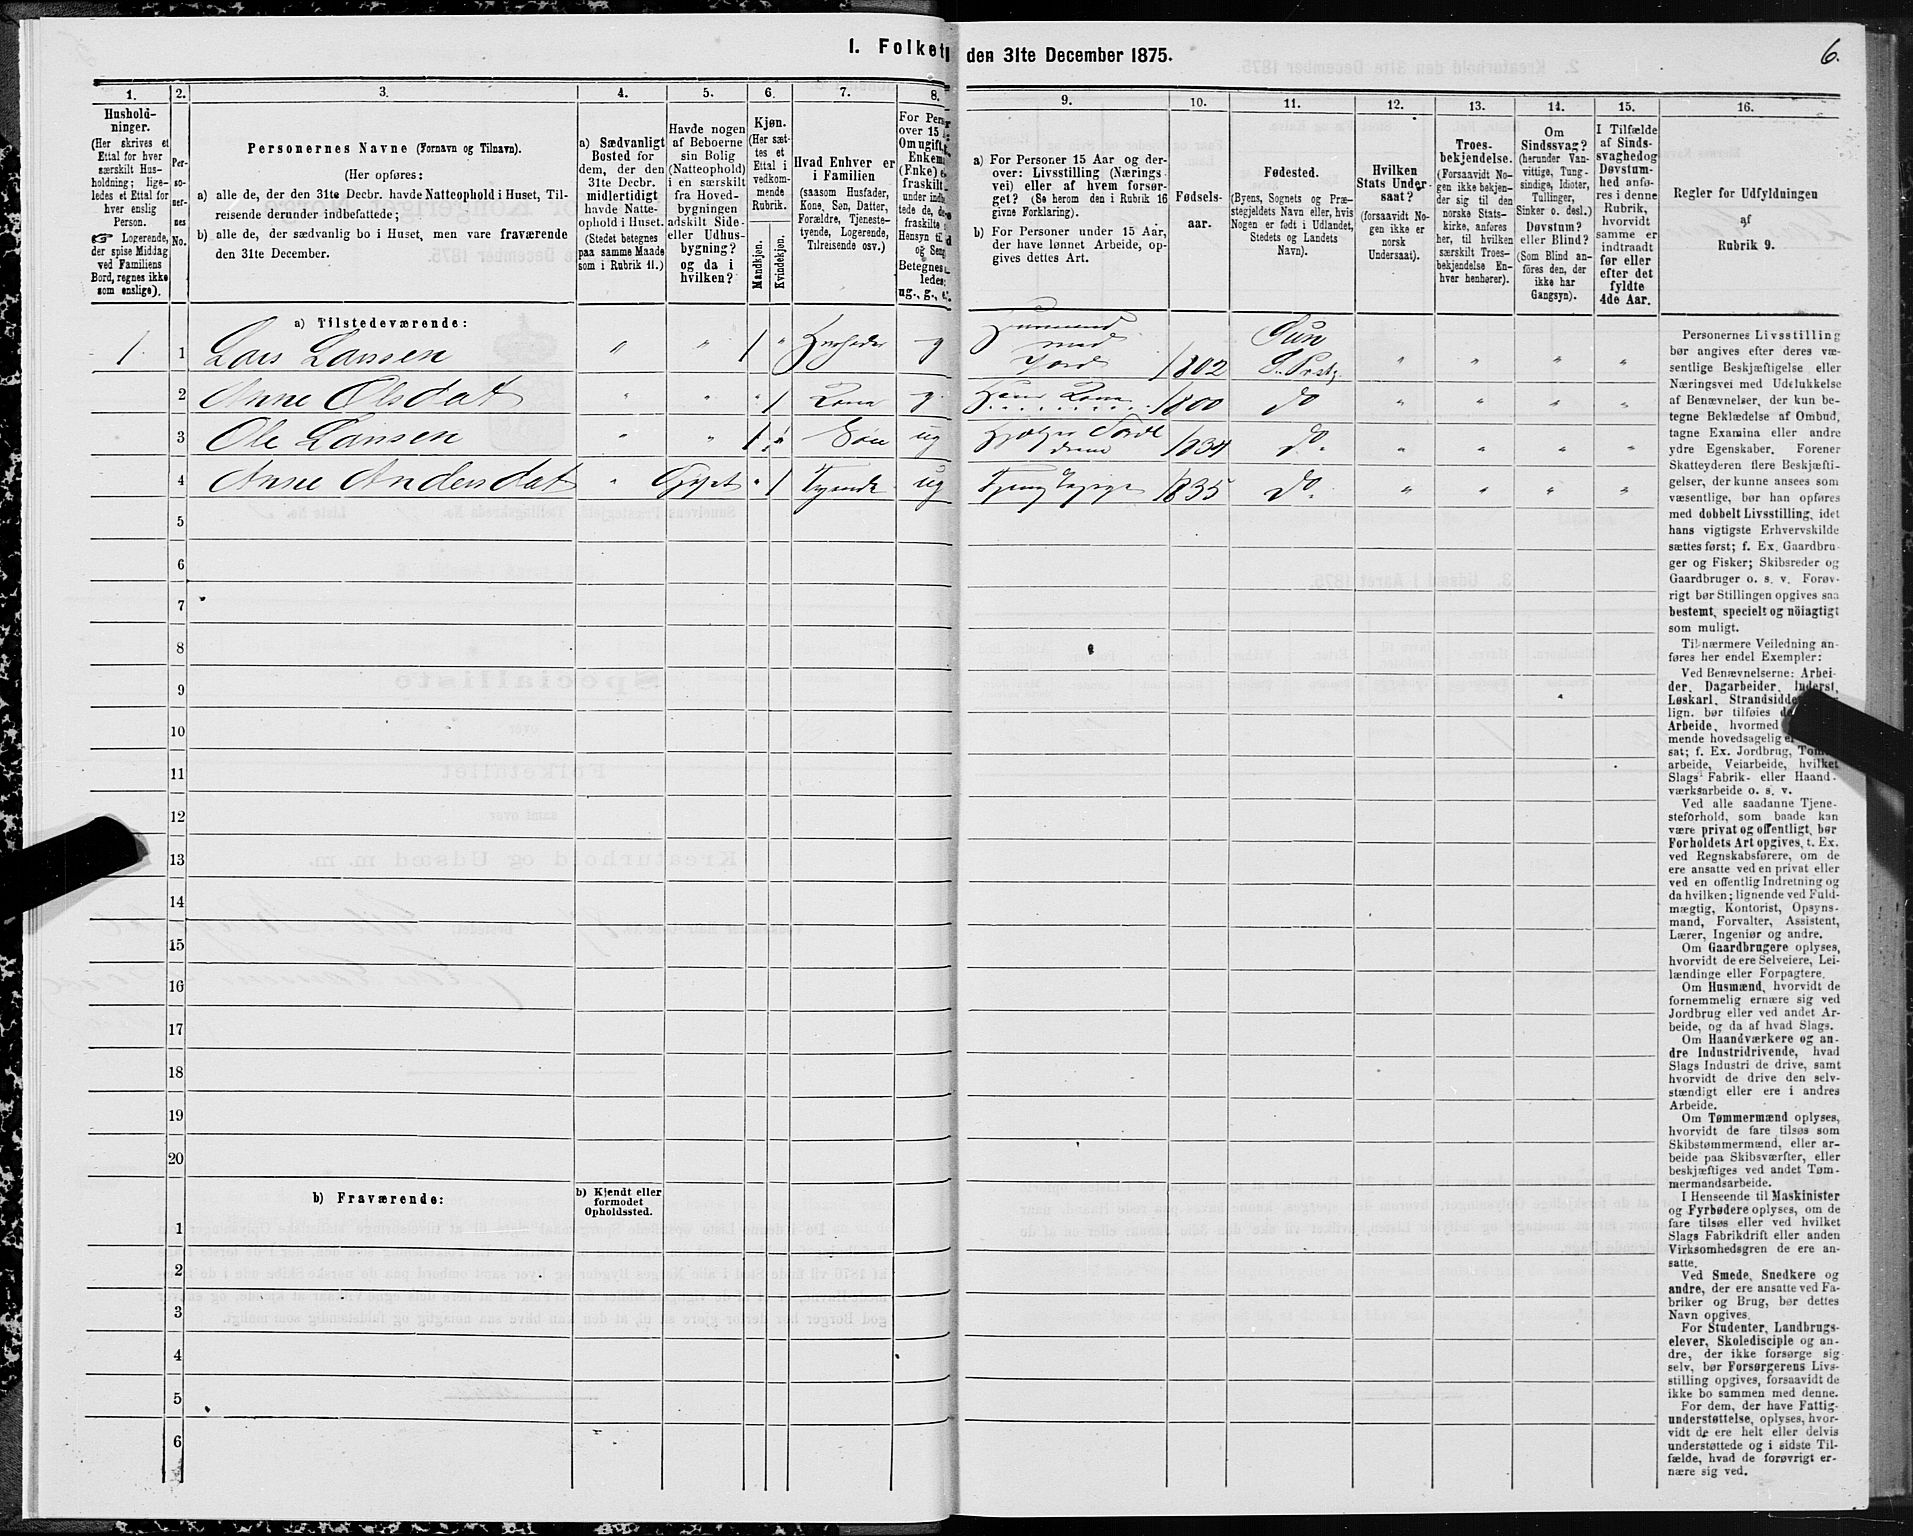 1. Folket den 31te December 1875.
6.
1.
Hushold-
ninger.
(Her skrives et
Ettal for hver
særskilt Hus-
holdning; lige-
ledes et Ettal for
hver enslig
Person.
Logerende,
der spise Middag
ved Familiens
Bord, regnes ikke
som enslige).
2.
Per-
so-
ner-
nes
No.
3.
Personernes Navne (Fornavn og Tilnavn).
(Her opføres:
a) alle de, der den 31te Decbr. havde Natteophold i Huset, Til-
reisende derunder indbefattede;
b) alle de, der sædvanlig bo i Huset, men vare fraværende
den 31te December.
4.
a) Sædvanligt
Bosted for
dem, der den
31te Decbr.
midlertidigt
havde Natte-
ophold i Huset.
(Stedet betegnes
paa samme Maade
som i Rubrik 11.)
5.
Havde nogen
af Beboerne
sin Bolig
(Natteophold)
i en særskilt
fra Hoved-
bygningen
adskilt Side-
eller Udhus-
bygning?
og da i
hvilken?
6.
Kjøn.
(Her sæt-
tes et
Ettal i
vedkom-
mende
Rubrik.
Mandkjøn.
Kvindekjøn.
7.
Hvad Enhver er
i Familien
(saasom Husfader,
Kone, Søn, Datter,
Forældre, Tjeneste-
tyende, Logerende,
Tilreisende osv.)
8.
For Pers
over 15
Om ugift,
Enkem
(Enke)
fraskilt
under indb
tede de, d
fraskilte
Hensyn til
og Seng
Betegnes
ledes:
ug., g., e.
9.
a) For Personer 15 Aar og der-
over: Livsstilling (Nærings-
vei) eller af hvem forsør-
get? (Se herom den i Rubrik 16
givne Forklaring).
b) For Personer under 15 Aar,
der have lønnet Arbeide, op-
gives dettes Art.
10.
Fødsels-
aar.
11.
Fødested.
(Byens, Sognets og Præ-
stegjeldets Navn eller, hvis
Nogen er født i Udlandet,
Stedets og Landets
Navn).
12.
Hvilken
Stats Under-
saat?
(forsaavidt No-
gen ikke er
norsk
Undersaat).
13.
Troes-
bekjendelse.
(Forsaavidt No-
gen ikke bekjen-
der sig til den
norske Stats-
kirke, anføres
her, til hvilken
særskilt Troes-
bekjendelse En-
hver henhører).
14.
Om
Sindssvag?
(herunder Van-
vittige, Tung-
sindige, Idioter,
Tullinger,
Sinker o. desl.)
Døvstum?
eller Blind?
(Som Blind an-
føres den, der
ikke har
Gangsyn).
15.
I Tilfælde
af Sinds-
svaghed og
Døvstum-
hed anfø-
res i denne
Rubrik,
hvorvidt
samme er
indtraadt
før eller
efter det
fyldte
4de Aar.
16.
Regler for Udfyldningen
af
Rubrik 9.
a) Tilstedeværende:
1. 1 Lars Larsen " " 1 " Husfader g Husmand med Jord 1802 Sun S. Prstg. " " " "
2 Anne Olsdat " " " 1 Kone g. Hans Kone 1800 do " " " "
3 Ole Larsen " " 1 " Søn ug 1834 do. " " " "
4 Anne Andersdat " " 1 Tyende ug 1835 do. " " " "
5
6
7
8
9
10
11
12
13
14
15
16
17
18
19
20
b) Fraværende:
b) Kjendt eller
formodet
Opholdssted.
1
2
3
4
5
6
Personernes Livsstilling
bør angives efter deres væ-
sentlige Beskjæftigelse eller
Næringsvei med Udelukkelse
af Benævnelser, der kun be-
tegne Beklædelse af Ombud,
tagne Examina eller andre
ydre Egenskaber. Forener
Skatteyderen flere Beskjæfti-
gelser, der kunne ansees som
væsentlige, bør han opføres
med dobbelt Livsstilling, idet
hans vigtigste Erhvervskilde
sættes først; f. Ex. Gaardbru-
ger og Fisker; Skibsreder og
Gaardbruger o. s. v. Forøv-
rigt bør Stillingen opgives saa
bestemt, specielt og nøiagtigt
som muligt.
Til nærmere Veiledning an-
føres her endel Exempler:
Ved Benævnelserne: Arbei-
der, Dagarbeider, Inderst,
Løskarl, Strandsidder
lign. bør tilføies
Arbeide, hvormed
mende hovedsagelig
sat; f. Ex. Jordbrug, Tom
arbeide, Veiarbeide, hvilket
Slags Fabrik- eller Haand-
værksarbeide o. s. v.
Ved alle saadanne Tjene-
steforhold, som baade kan
være privat og offentligt, bør
Forholdets Art opgives, t. Ex.
ved Regnskabsførere, om de
ere ansatte ved en privat eller
ved en offentlig Indretning og
da hvilken; lignende ved Fuld-
mægtig, Kontorist, Opsyns-
mand, Forvalter, Assistent,
Lærer, Ingeniør og andre.
Om Gaardbrugere oplyses,
hvorvidt de ere Selveiere, Lei-
lændinge eller Forpagtere.
Om Husmænd, hvorvidt de
fornemmelig ernære sig ved
Jordbrug eller ved andet Ar-
beide, og da af hvad Slags.
Om Haandværkere og an-
dre Industridrivende, hvad
Slags Industri de drive, samt
hvorvidt de drive den selv-
stændigt eller ere i andres
Arbeide.
Om Tømmermænd oplyses,
hvorvidt de fare tilsøs som
Skibstømmermænd, eller ar-
beide paa Skibsværfter, eller
beskjæftiges ved andet Tøm-
mermandsarbeide.
I Henseende til Maskinister
og Fyrbødere oplyses, om de
fare tilsøs eller ved hvilket
Slags Fabrikdrift eller anden
Virksomhedsgren de ere an-
satte.
Ved Smede, Snedkere og
andre, der ere ansatte ved Fa-
briker og Brug, bør dettes
Navn opgives.
For Studenter, Landbrugs-
elever, Skoledisciple og an-
dre, der ikke forsørge sig
selv, bør Forsørgerens Livs-
stilling opgives, forsaavidt de
ikke bo sammen med denne.
For dem, der have Fattig-
understøttelse, oplyses, hvor-
vidt de ere helt eller delvis
understøttede og i sidste Til-
fælde, hvad de forøvrigt er-
nære sig ved.